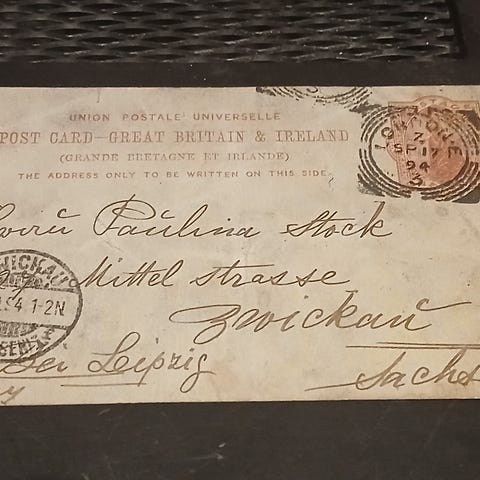 UNION POSTALE UNIVERSELLE
POST CARD—GREAT BRITAIN & IRELAND
(GRANDE BRETAGNE ET IRLANDE)
THE ADDRESS ONLY TO BE WRITTEN ON THIS SIDE.
LONDON E
Z
SP 17
94
Paulina Stock
Mittel strasse
Zwickau
Leipzig
Sachs
ZWICKAU
94 1-2N